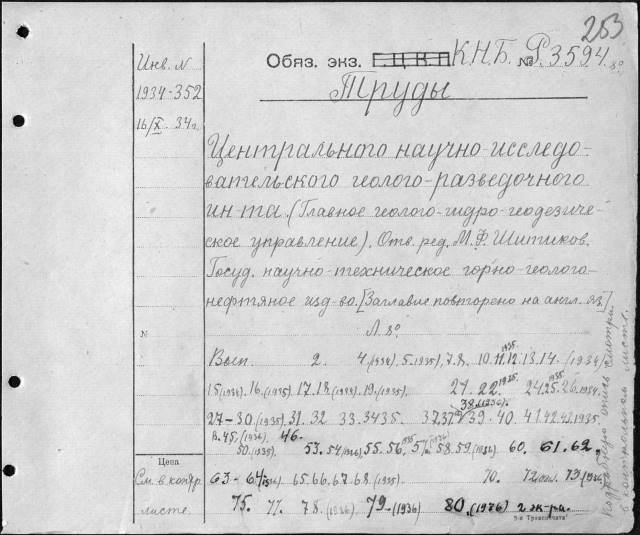 253
Инв. N
1934-352
16/X. 34 г.
Обяз. экз. Г.Ц.К.П К.Н.Б. № Р.3594. 8°
Труды
Центрального научно-исследо-
вательского геолого-разведочного
ин-та. (Главное геолого-гидро-геодезиче-
ское управление). Отв. ред. М.Ф. Шитиков.
Госуд. научно-техническое горно-геолого-
нефтяное изд-во. [Заглавие повторено на англ. яз.]
Л. 8°.
N
Вып. 2. 4. (1934), 5. 1935), 7. 8. 10. 11. 12. 1935. 13. 14. (1934)
15 (1934). 16. (1935). 17. 18. (1934). 19. (1935). 21. 22. 1935. 24. 25. 1935. 26. 1934.
38. (1936).
27-30. (1935). 31. 32 33. 34 35. 37. 39. 40. 41. 42. 1935.
в. 45. (1936) 46.
50. (1935). 53. 54. (1936). 55. 56. 57. (1936) 58. 59. (1936) 60. 61. 62.
Цена
См. в контр.
листе.
63- 64. (1936) 65. 66. 67. 68. (1935). 70. 72. 73. (1936)
75. 77. 78. (1936) 79. (1936) 80. (1936) 2 экз-ра.
5-я Транспечать
в контрольном листе.